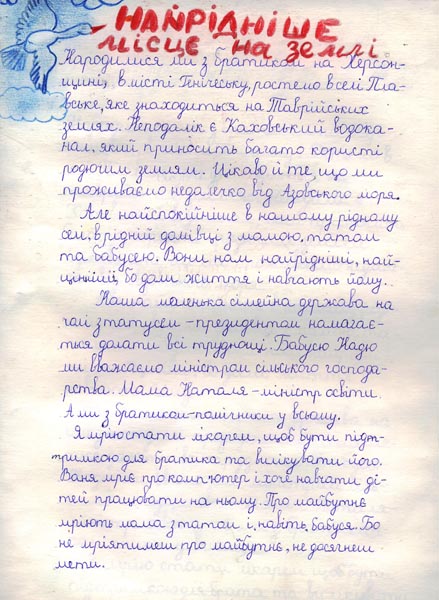 НАЙРІДНІШЕ
МІСЦЕ НА ЗЕМЛІ
Народилися ми з братиком на Херсон-
щині, в місті Генічеську, ростемо в селі Пла-
вське, яке знаходиться на Таврійських
землях. Неподалік є Каховський водока-
нал, який приносить багато користі
родючим землям. Цікаво й те, що ми
проживаємо недалечко від Азовського моря.
Але найспокійніше в нашому рідному
селі, в рідній домівці з мамою, татом
та бабусею. Вони нам найрідніші, най-
цінніші, бо дали життя і навчають йому.
Наша маленька сімейна держава на
чолі з татусем - президентом намагає-
ться долати всі труднощі. Бабусю Надю
ми вважаємо міністром сільського господа-
рства. Мама Наталя - міністр освіти.
А ми з братиком - помічники у всьому.
Я мрію стати лікарем, щоб бути підт-
тримкою для братика та вилікувати його.
Ваня мріє про комп'ютер і хоче навчати ді-
тей працювати на ньому. Про майбутнє
мріють мама з татом і, навіть, бабуся. Бо
не мріятимеш про майбутнє, не досягнеш
мети.